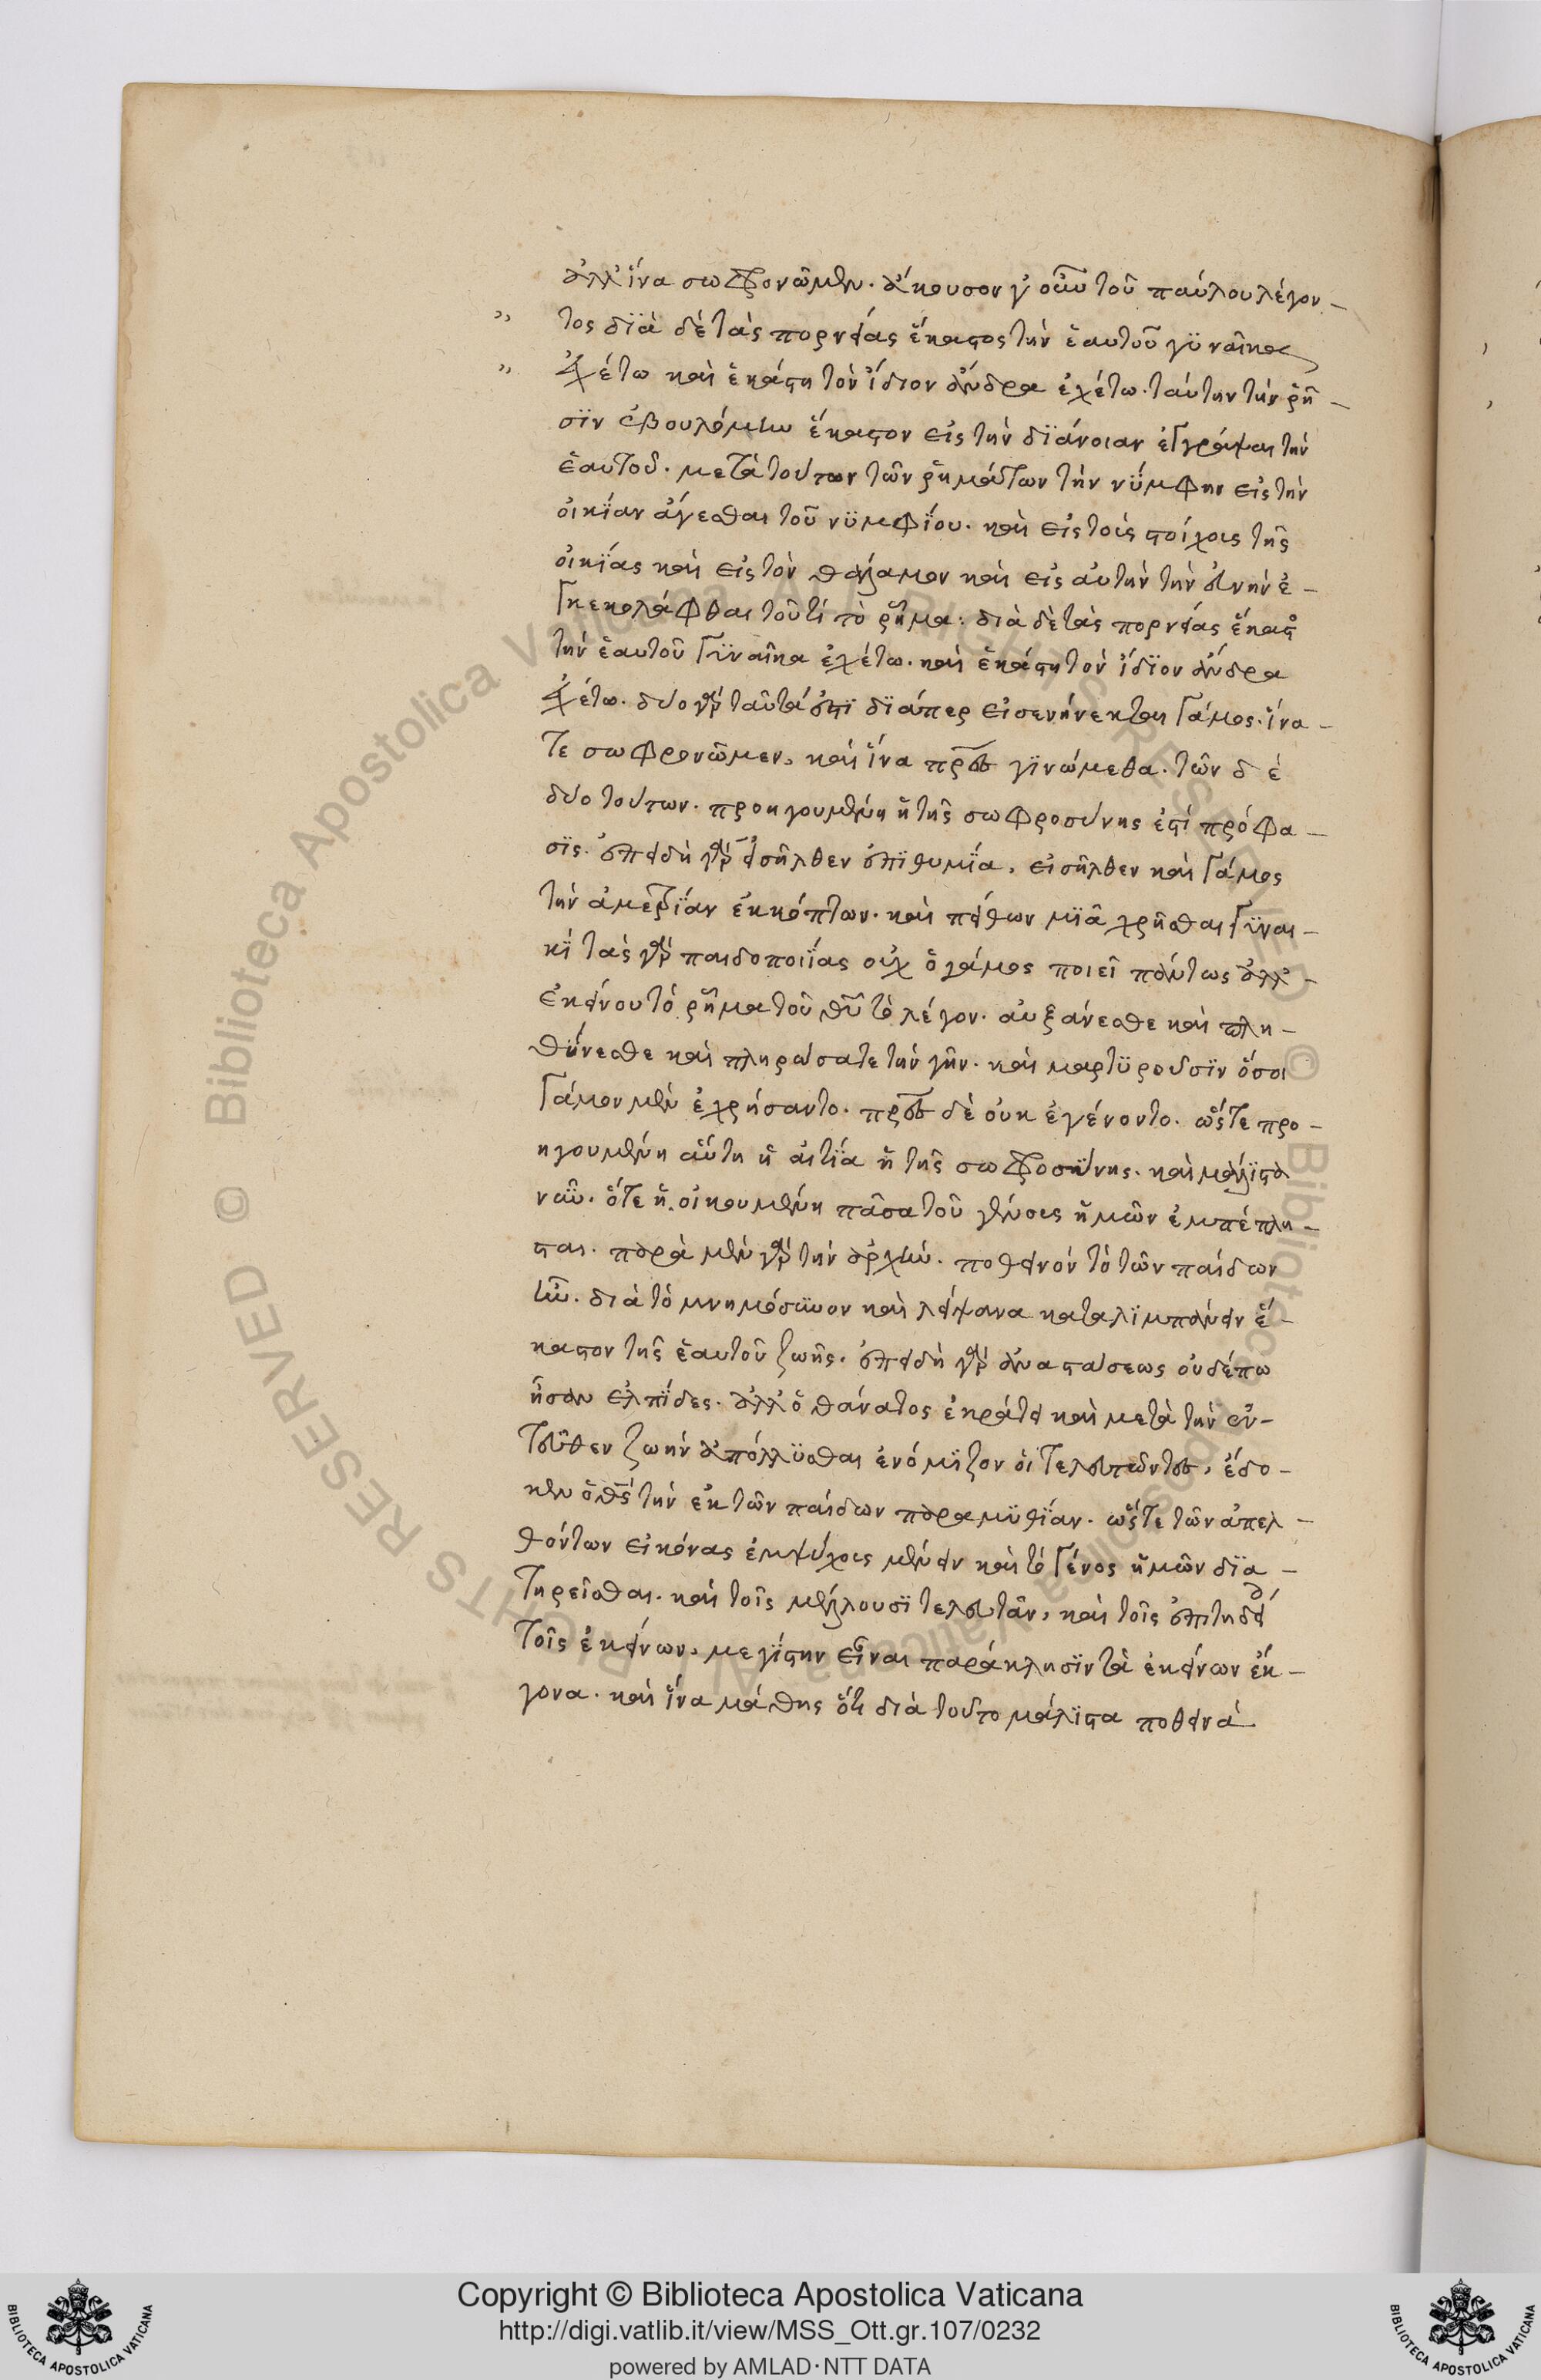 ἀλλ' ἵνα σωφρονῶμεν. ἄκουσον γ' οὖν τοῦ παύλου λέγον-
" τος διὰ δὲ τὰς πορνείας ἕκαστος τὴν ἑαυτοῦ γυναῖκα
" ἐχέτω καὶ ἑκάστη τὸν ἴδιον ἄνδρα ἐχέτω. ταύτην τὴν ῥῆ-
σιν ἐβουλόμην ἕκαστον εἰς τὴν διάνοιαν ἐγγράψαι τὴν
ἑαυτοῦ. μετὰ τούτων τῶν ῥημάτων τὴν νύμφην εἰς τὴν
οἰκίαν ἄγεσθαι τοῦ νυμφίου. καὶ εἰς τοὶς τοίχοις τῆς
οἰκίας καὶ εἰς τὸν θάλαμον καὶ εἰς αὐτὴν τὴν εὐνὴν ἐ-
γκεκολάφθαι τουτί τὸ ῥῆμα. διὰ δὲ τὰς πορνείας ἕκαστος
τὴν ἑαυτοῦ γυναῖκα ἐχέτω. καὶ ἑκάστη τὸν ἴδιον ἄνδρα
ἐχέτω. δύο γὰρ ταῦτά ἐστι διάπερ εἰσενήνεκται γάμος. ἵνα-
τε σωφρονῶμεν, καὶ ἵνα πατέρες γινώμεθα. τῶν δὲ
δύο τούτων. προηγουμένη ἡ τῆς σωφροσύνης ἐστί πρόφα-
σις. ἐπειδὴ γὰρ εἰσῆλθεν ἐπιθυμία, εἰσῆλθεν καὶ γάμος
τὴν ἀμετρίαν ἐκκόπτων. καὶ πείθων μιᾶ χρῆσθαι γυναι-
κί τὰς γὰρ παιδοποιίας οὐχ ὁ γάμος ποιεῖ πάντως ἀλλ'
ἐκείνου τὸ ῥῆμα τοῦ θῦ τὸ λέγον. αὐξάνεσθε καὶ πλη-
θύνεσθε καὶ πληρώσατε τὴν γῆν. καὶ μαρτυροῦσιν ὅσοι
γάμον μὲν ἐχρήσαντο. πατέρες δὲ οὐκ ἐγένοντο. ὥστε προ-
ηγουμένη αὕτη ἡ αἰτία ἡ τῆς σωφροσύνης. καὶ μάλιστα
νῦν. ὅτε ἡ οἰκουμένη πᾶσα τοῦ γένους ἡμῶν ἐμπέπλη-
σται. παρὰ μὲν γὰρ τὴν ἀρχὴν. ποθεινὸν τὸ τῶν παίδων
ἦν. διὰ τὸ μνημόσυνον καὶ λείψανα καταλιμπάνειν ἕ-
καστον τῆς ἑαυτοῦ ζωῆς. ἐπειδὴ γὰρ ἀναστάσεως οὐδέπω
ἦσαν ἐλπίδες. ἀλλ' ὁ θάνατος ἐκράτει καὶ μετὰ τὴν ἐν-
τεῦθεν ζωὴν ἀπόλλυσθαι ἐνόμιζον οἱ τελευτῶντες, ἔδω-
κεν ὁ θς τὴν ἐκ τῶν παίδων παραμυθίαν. ὥστε τῶν ἀπελ-
θόντων εἰκόνας ἐμψύχοις μένειν καὶ τὸ γένος ἡμῶν δια-
τηρεῖσθαι. καὶ τοῖς μέλλουσι τελευτᾶν, καὶ τοῖς ἐπιτηδεί
τοῖς ἐκείνων, μεγίστην εἶναι παράκλησιν τὰ ἐκείνων ἔκ-
γονα. καὶ ἵνα μάθης ὅτι διὰ τοῦτο μάλιστα ποθεινά
Copyright © Biblioteca Apostolica Vaticana
http://digi.vatlib.it/view/MSS_Ott.gr.107/0232
powered by AMLAD·NTT DATA